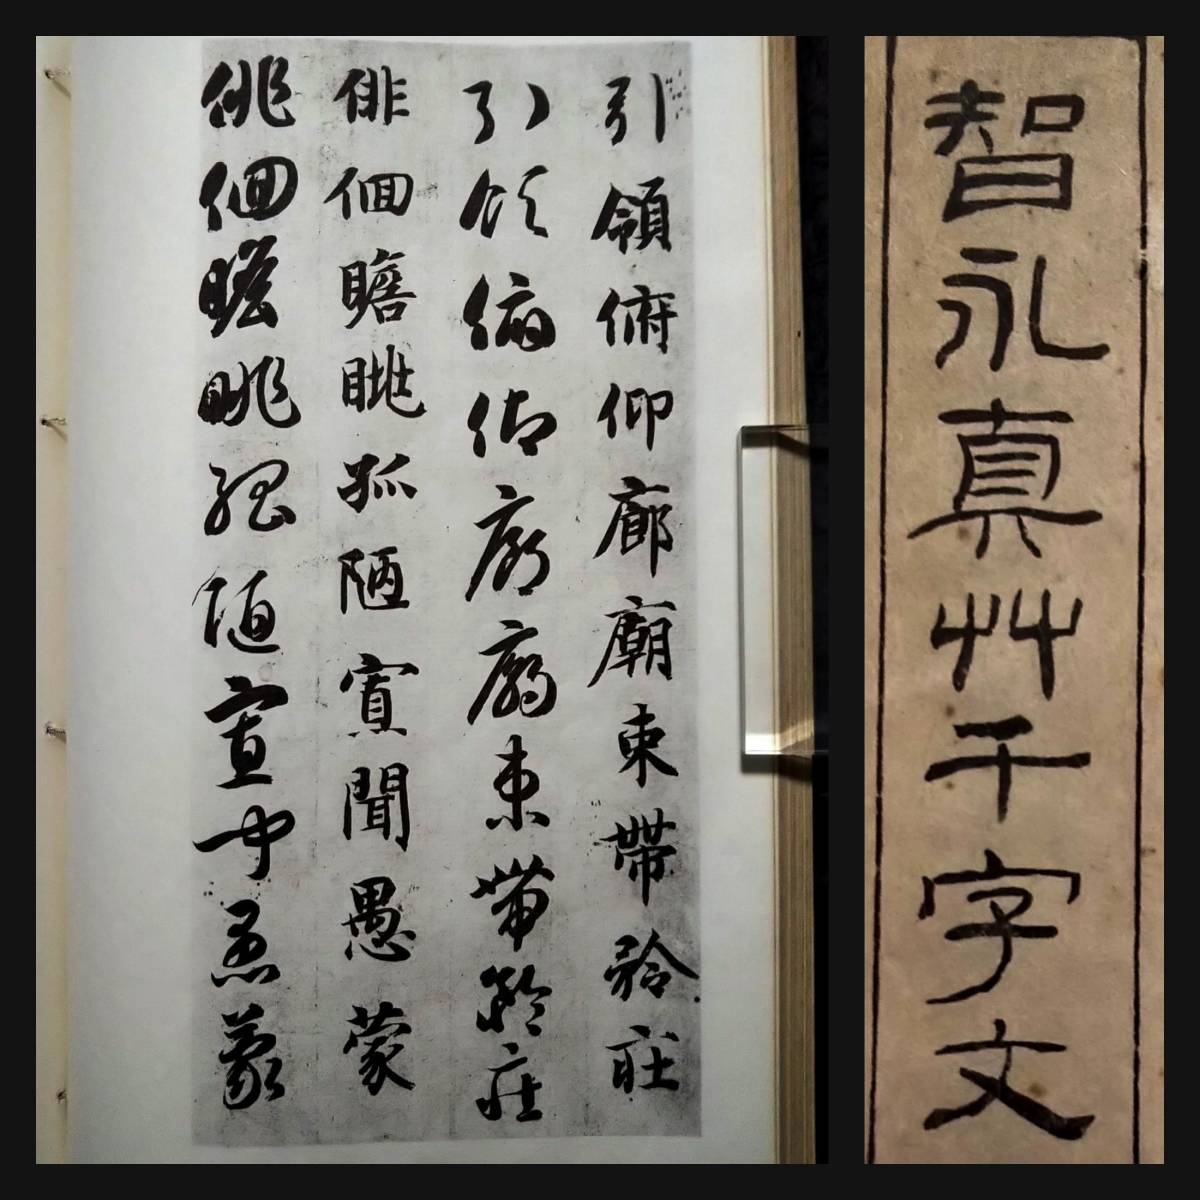 智永真艸千字文
引領俯仰廊廟束帶矜莊
引領俯仰廊廟束帶矜莊
俳佪瞻眺孤陋寡聞愚蒙
俳佪瞻眺孤陋寡聞愚蒙